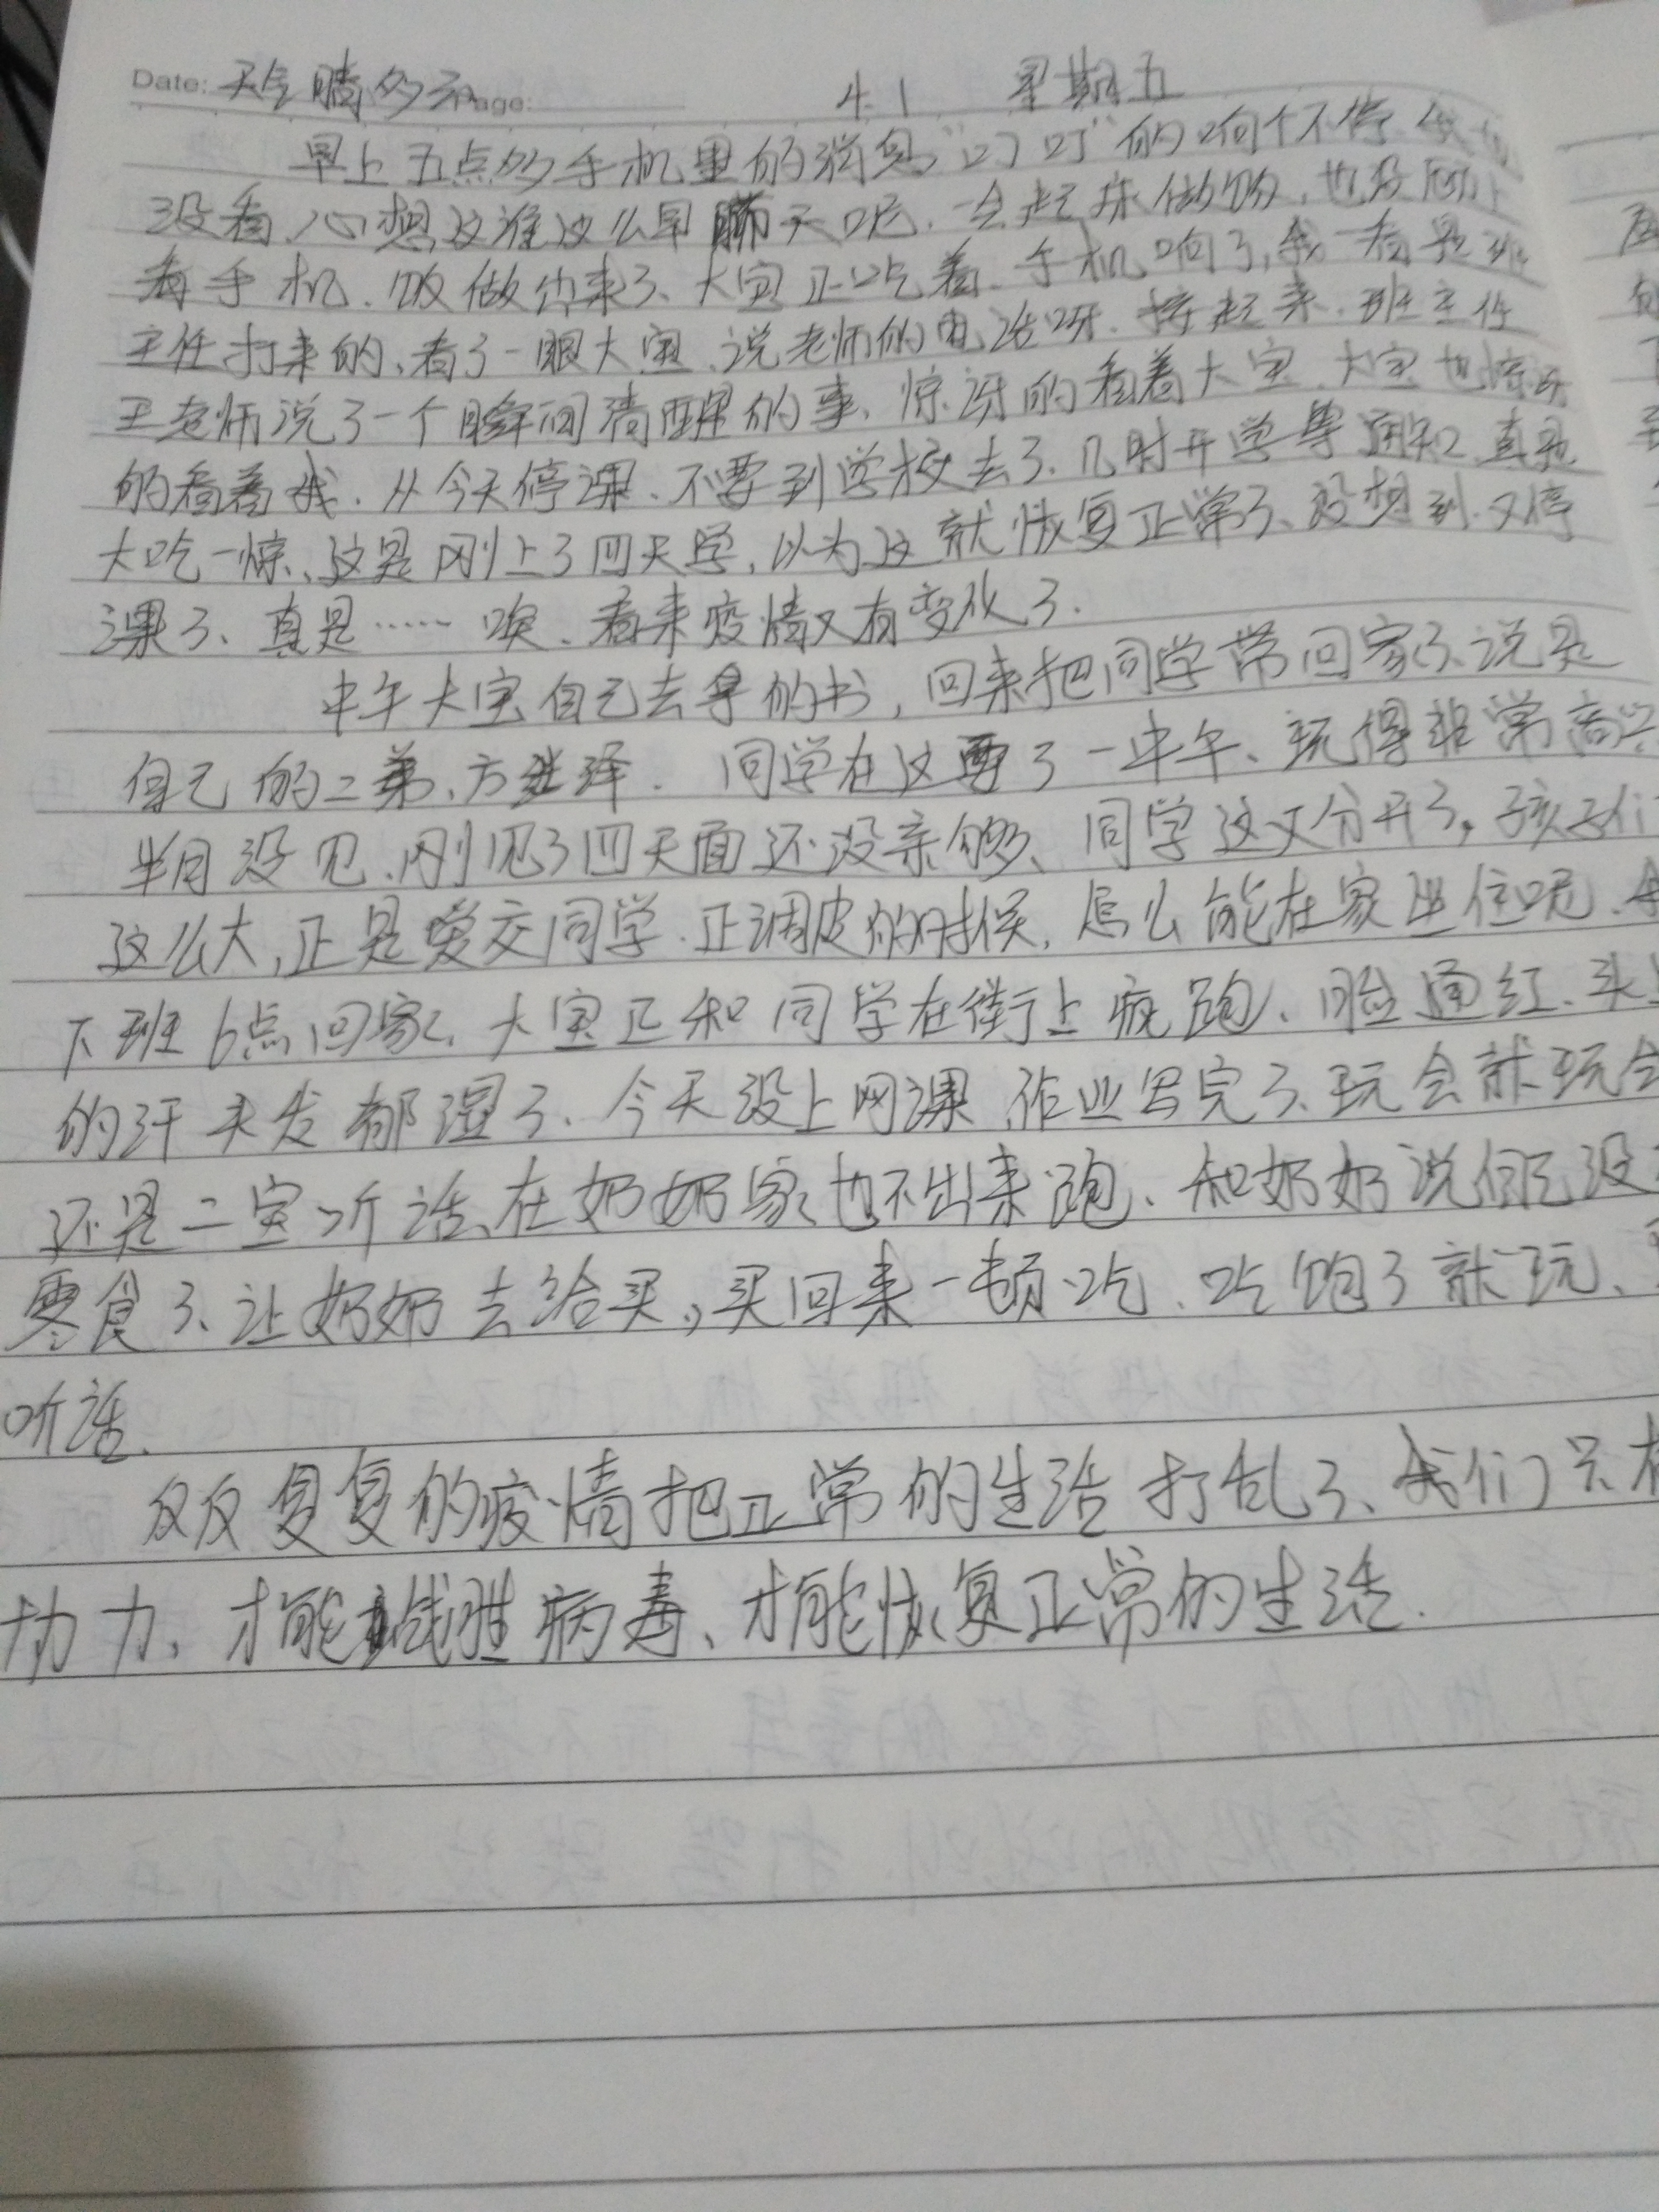 Date: 天气晴多云 Page: 4.1 星期五
早上五点多手机里的消息“叮叮”的响个不停
没看、心想这谁这么早聊天呢.一会起床做饭,也没顾上
看手机.饭做出来了、大宝正吃着.手机响了,我一看是班
主任打来的,看了一眼大宝,说老师的电话呀.接起来.班主任
王老师说了一个瞬间清醒的事、惊讶的看着大宝、大宝也惊讶
的看着我.从今天停课、不要到学校去了.几时开学等通知、真是
大吃一惊、这是刚上了四天学,以为这就恢复正常了、没想到又停
课了、真是……唉、看来疫情又有变化了.
中午大宝自己去拿的书,回来把同学带回家了、说是
自己的二弟、方 泽.同学在这耍了一中午、玩得非常高兴
半月没见、刚见了四天面还没亲够、同学这又分开了,孩子们
这么大,正是爱交同学.正调皮的时候,怎么能在家坐住呢.
下班6点回家、大宝正和同学在街上疯跑、脸通红、头上
的汗头发都湿了、今天没上网课,作业写完了、玩会就玩会
还是二宝听话、在奶奶家也不出来跑、和奶奶说自己没
零食了、让奶奶去给买,买回来一顿吃、吃饱了就玩、
听话.
反反复复的疫情把正常的生活打乱了、我们只有
协力、才能战胜病毒、才能恢复正常的生活.